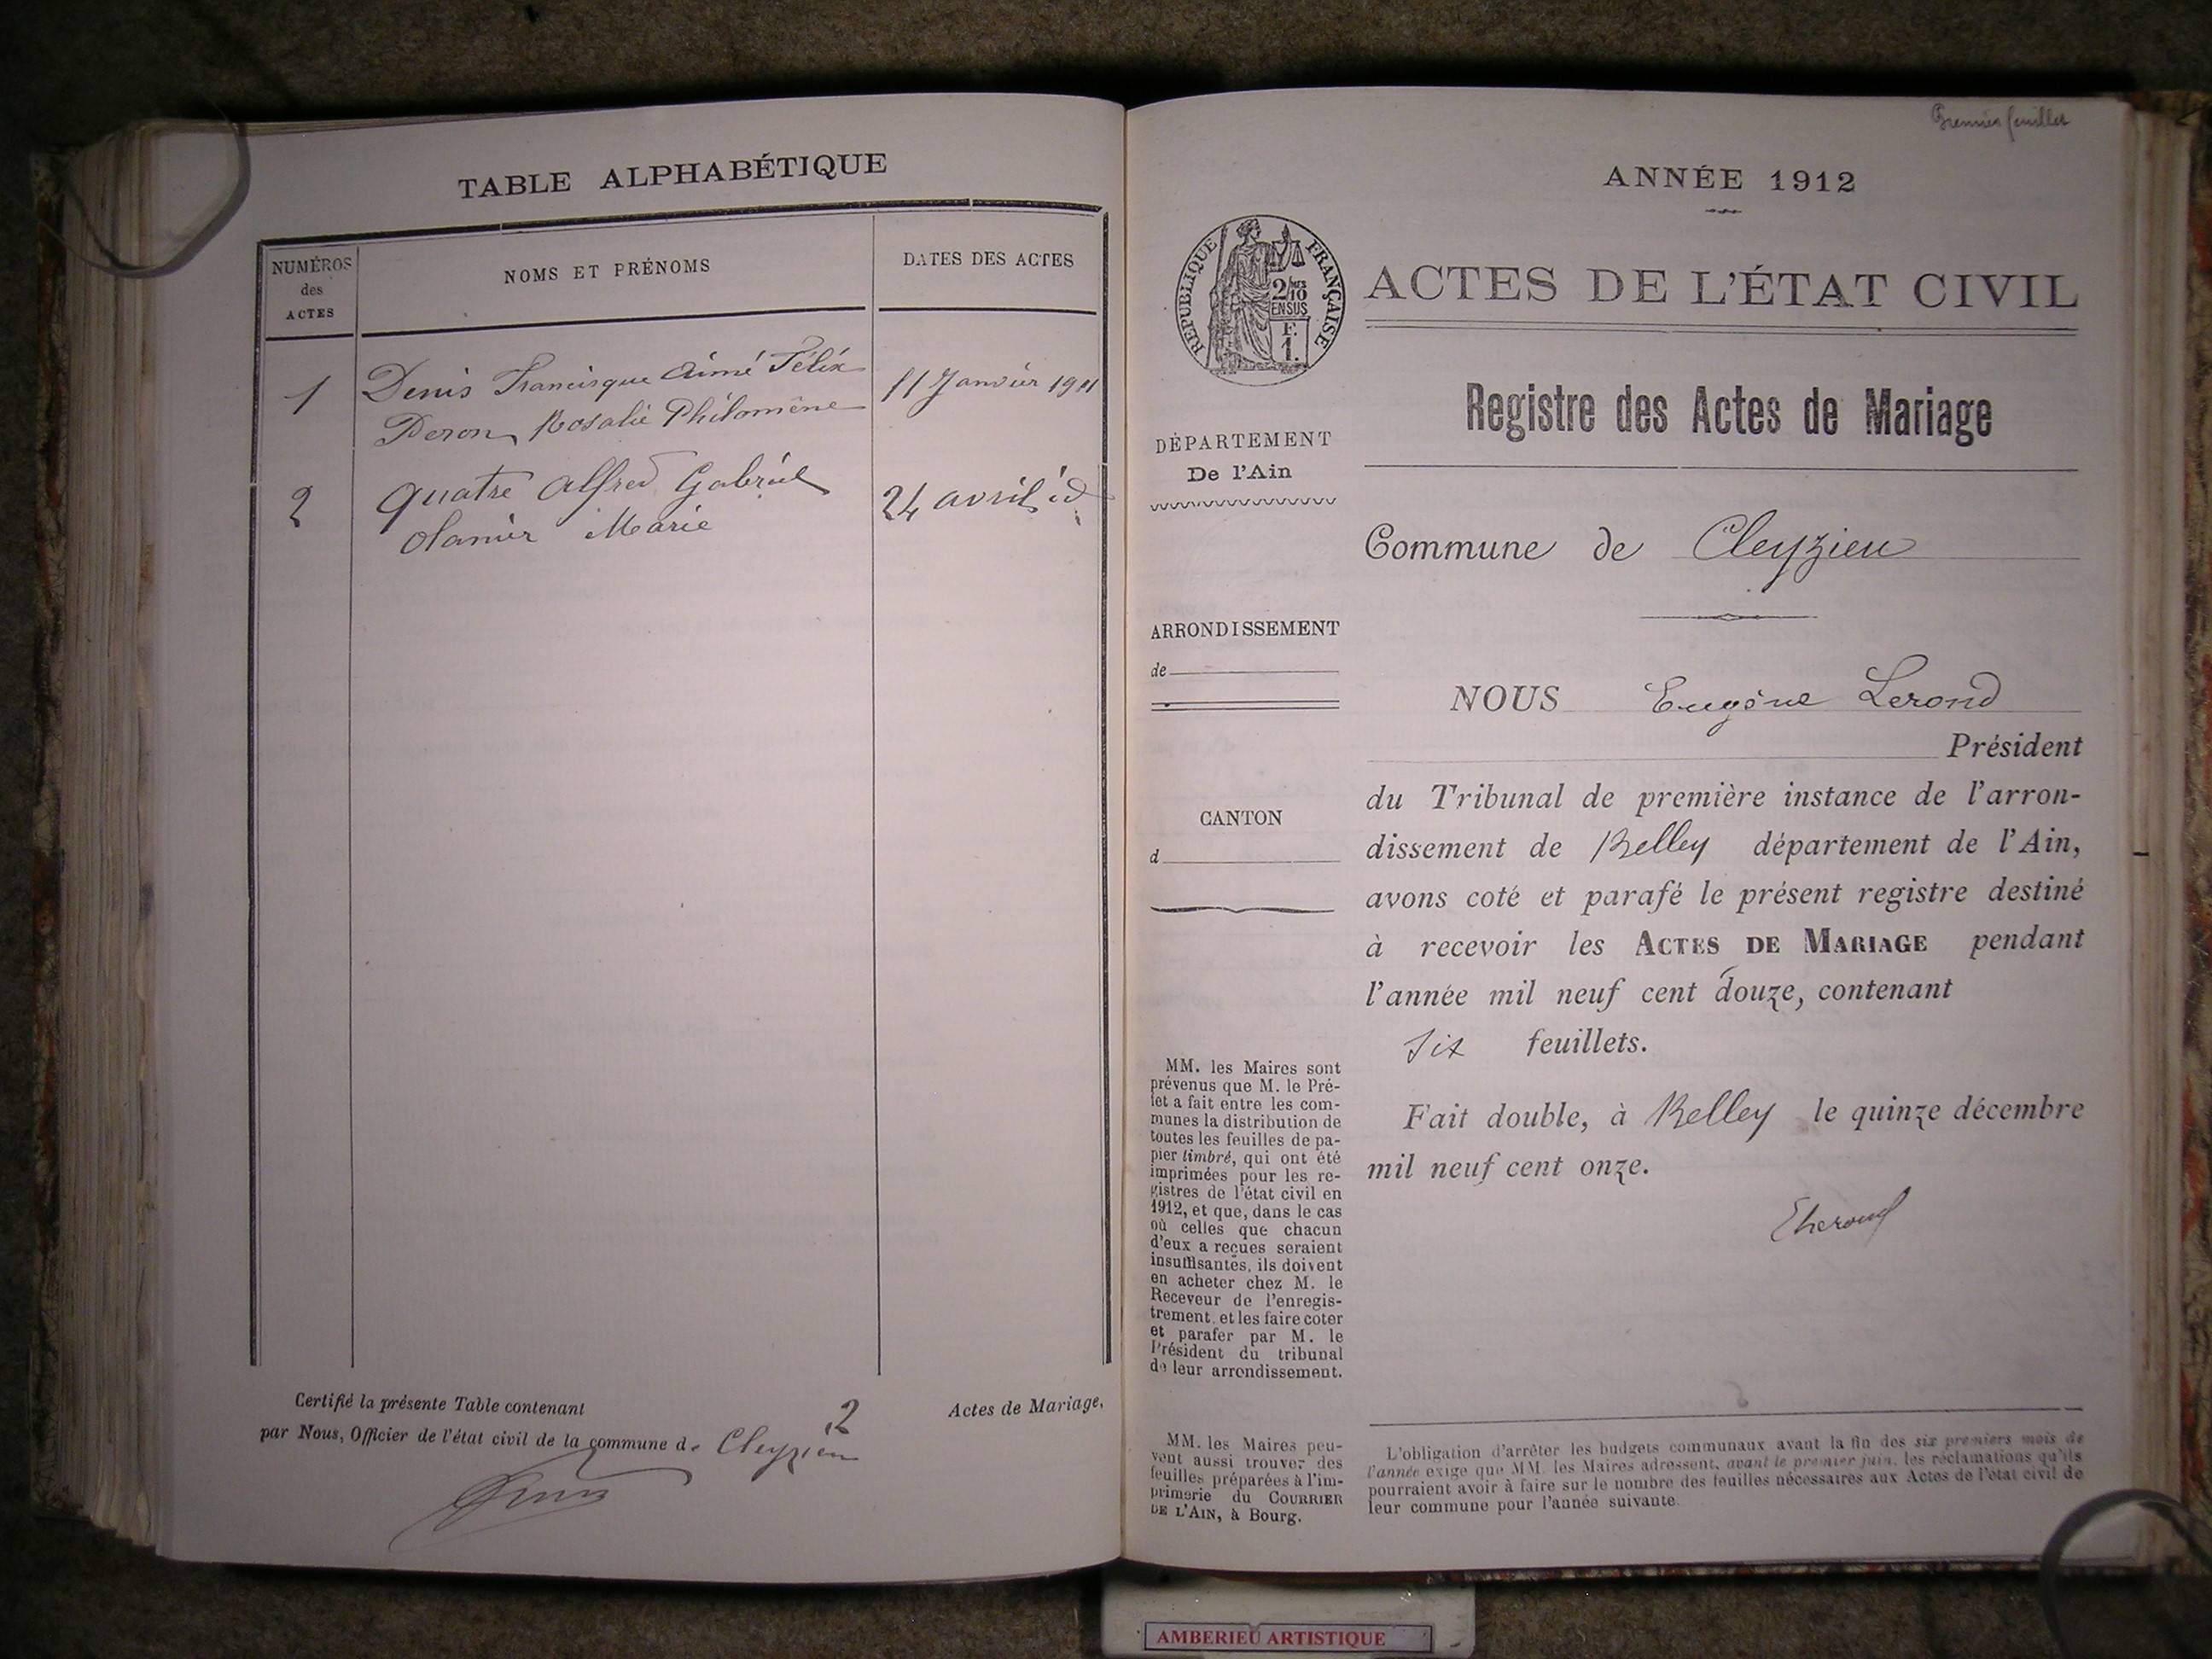 TABLE ALPHABÉTIQUE
NUMÉROS
des
ACTES
NOMS ET PRÉNOMS
DATES DES ACTES
1
Denis Francisque Aimé Félix
Peron Rosalie Philomène
11 Janvier 1911
2
Quatre Alfred Gabriel
Marie
24 avril id
Certifié la présente Table contenant 2 Actes de Mariage,
par Nous, Officier de l'état civil de la commune de Cleyzieu
Premier feuillet
ANNÉE 1912
RÉPUBLIQUE FRANÇAISE
2/10
EN SUS
F.
1.
ACTES DE L'ÉTAT CIVIL
Registre des Actes de Mariage
DÉPARTEMENT
De l'Ain
Commune de Cleyzieu
ARRONDISSEMENT
de
NOUS Eugène Lerond
Président
du Tribunal de première instance de l'arron-
CANTON
d
dissement de Belley département de l'Ain,
avons coté et parafé le présent registre destiné
à recevoir les ACTES DE MARIAGE pendant
l'année mil neuf cent douze, contenant
six feuillets.
Fait double, à Belley le quinze décembre
mil neuf cent onze.
MM. les Maires sont
prévenus que M. le Pré-
fet a fait entre les com-
munes la distribution de
toutes les feuilles de pa-
pier timbré, qui ont été
imprimées pour les re-
gistres de l'état civil en
1912, et que, dans le cas
où celles que chacun
d'eux a reçues seraient
insuffisantes, ils doivent
en acheter chez M. le
Receveur de l'enregis-
trement, et les faire coter
et parafer par M. le
Président du tribunal
de leur arrondissement.
MM. les Maires peu-
vent aussi trouver des
feuilles préparées à l'im-
primerie du COURRIER
DE L'AIN, à Bourg.
L'obligation d'arrêter les budgets communaux avant la fin des six premiers mois de
l'année exige que MM. les Maires adressent, avant le premier juin, les réclamations qu'ils
pourraient avoir à faire sur le nombre des feuilles nécessaires aux Actes de l'état civil de
leur commune pour l'année suivante.
AMBERIEU ARTISTIQUE